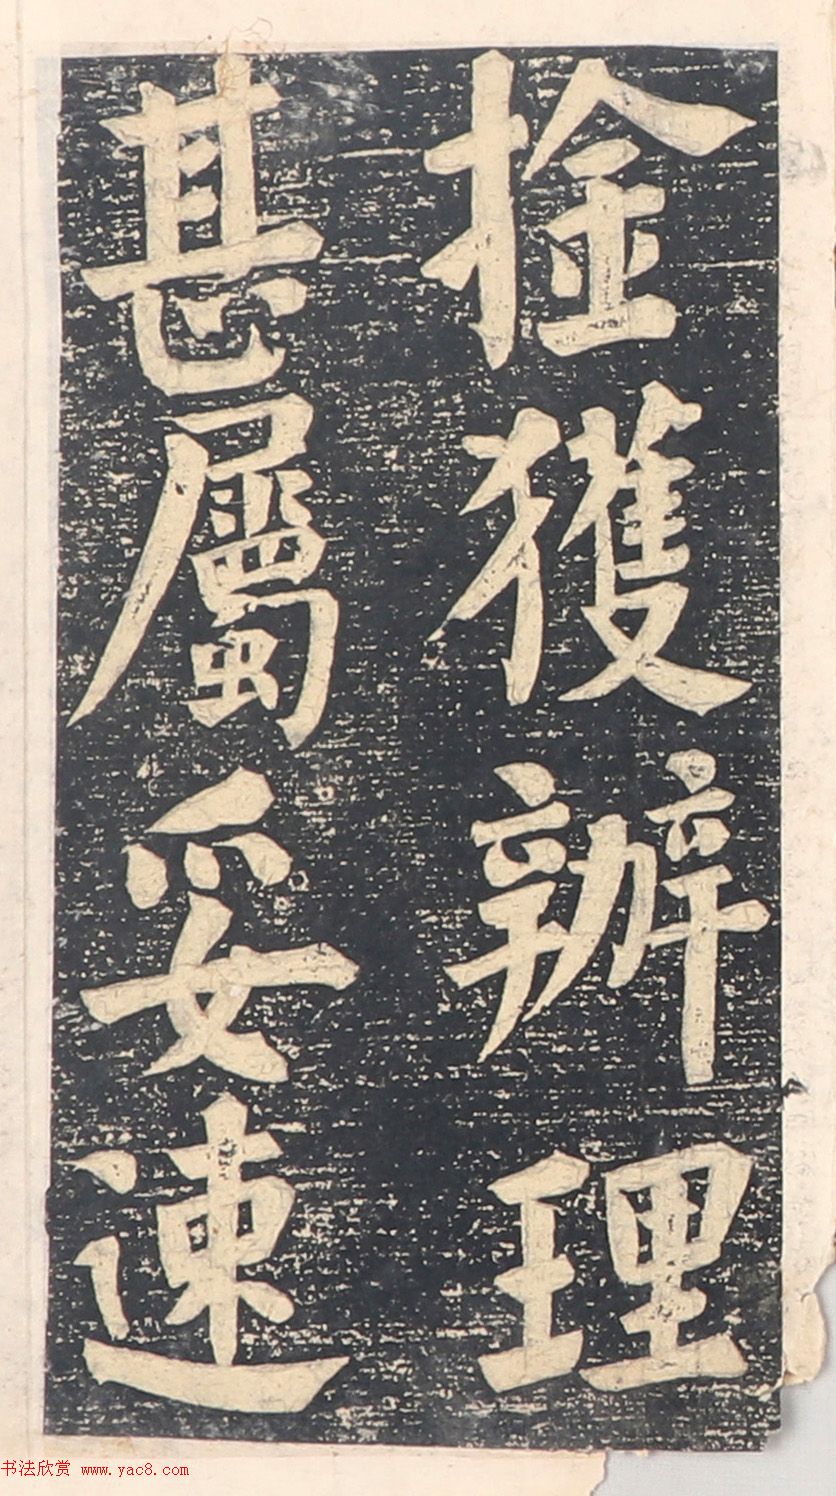 拴獲辦理
甚屬妥速
书法欣赏 www.yac8.com